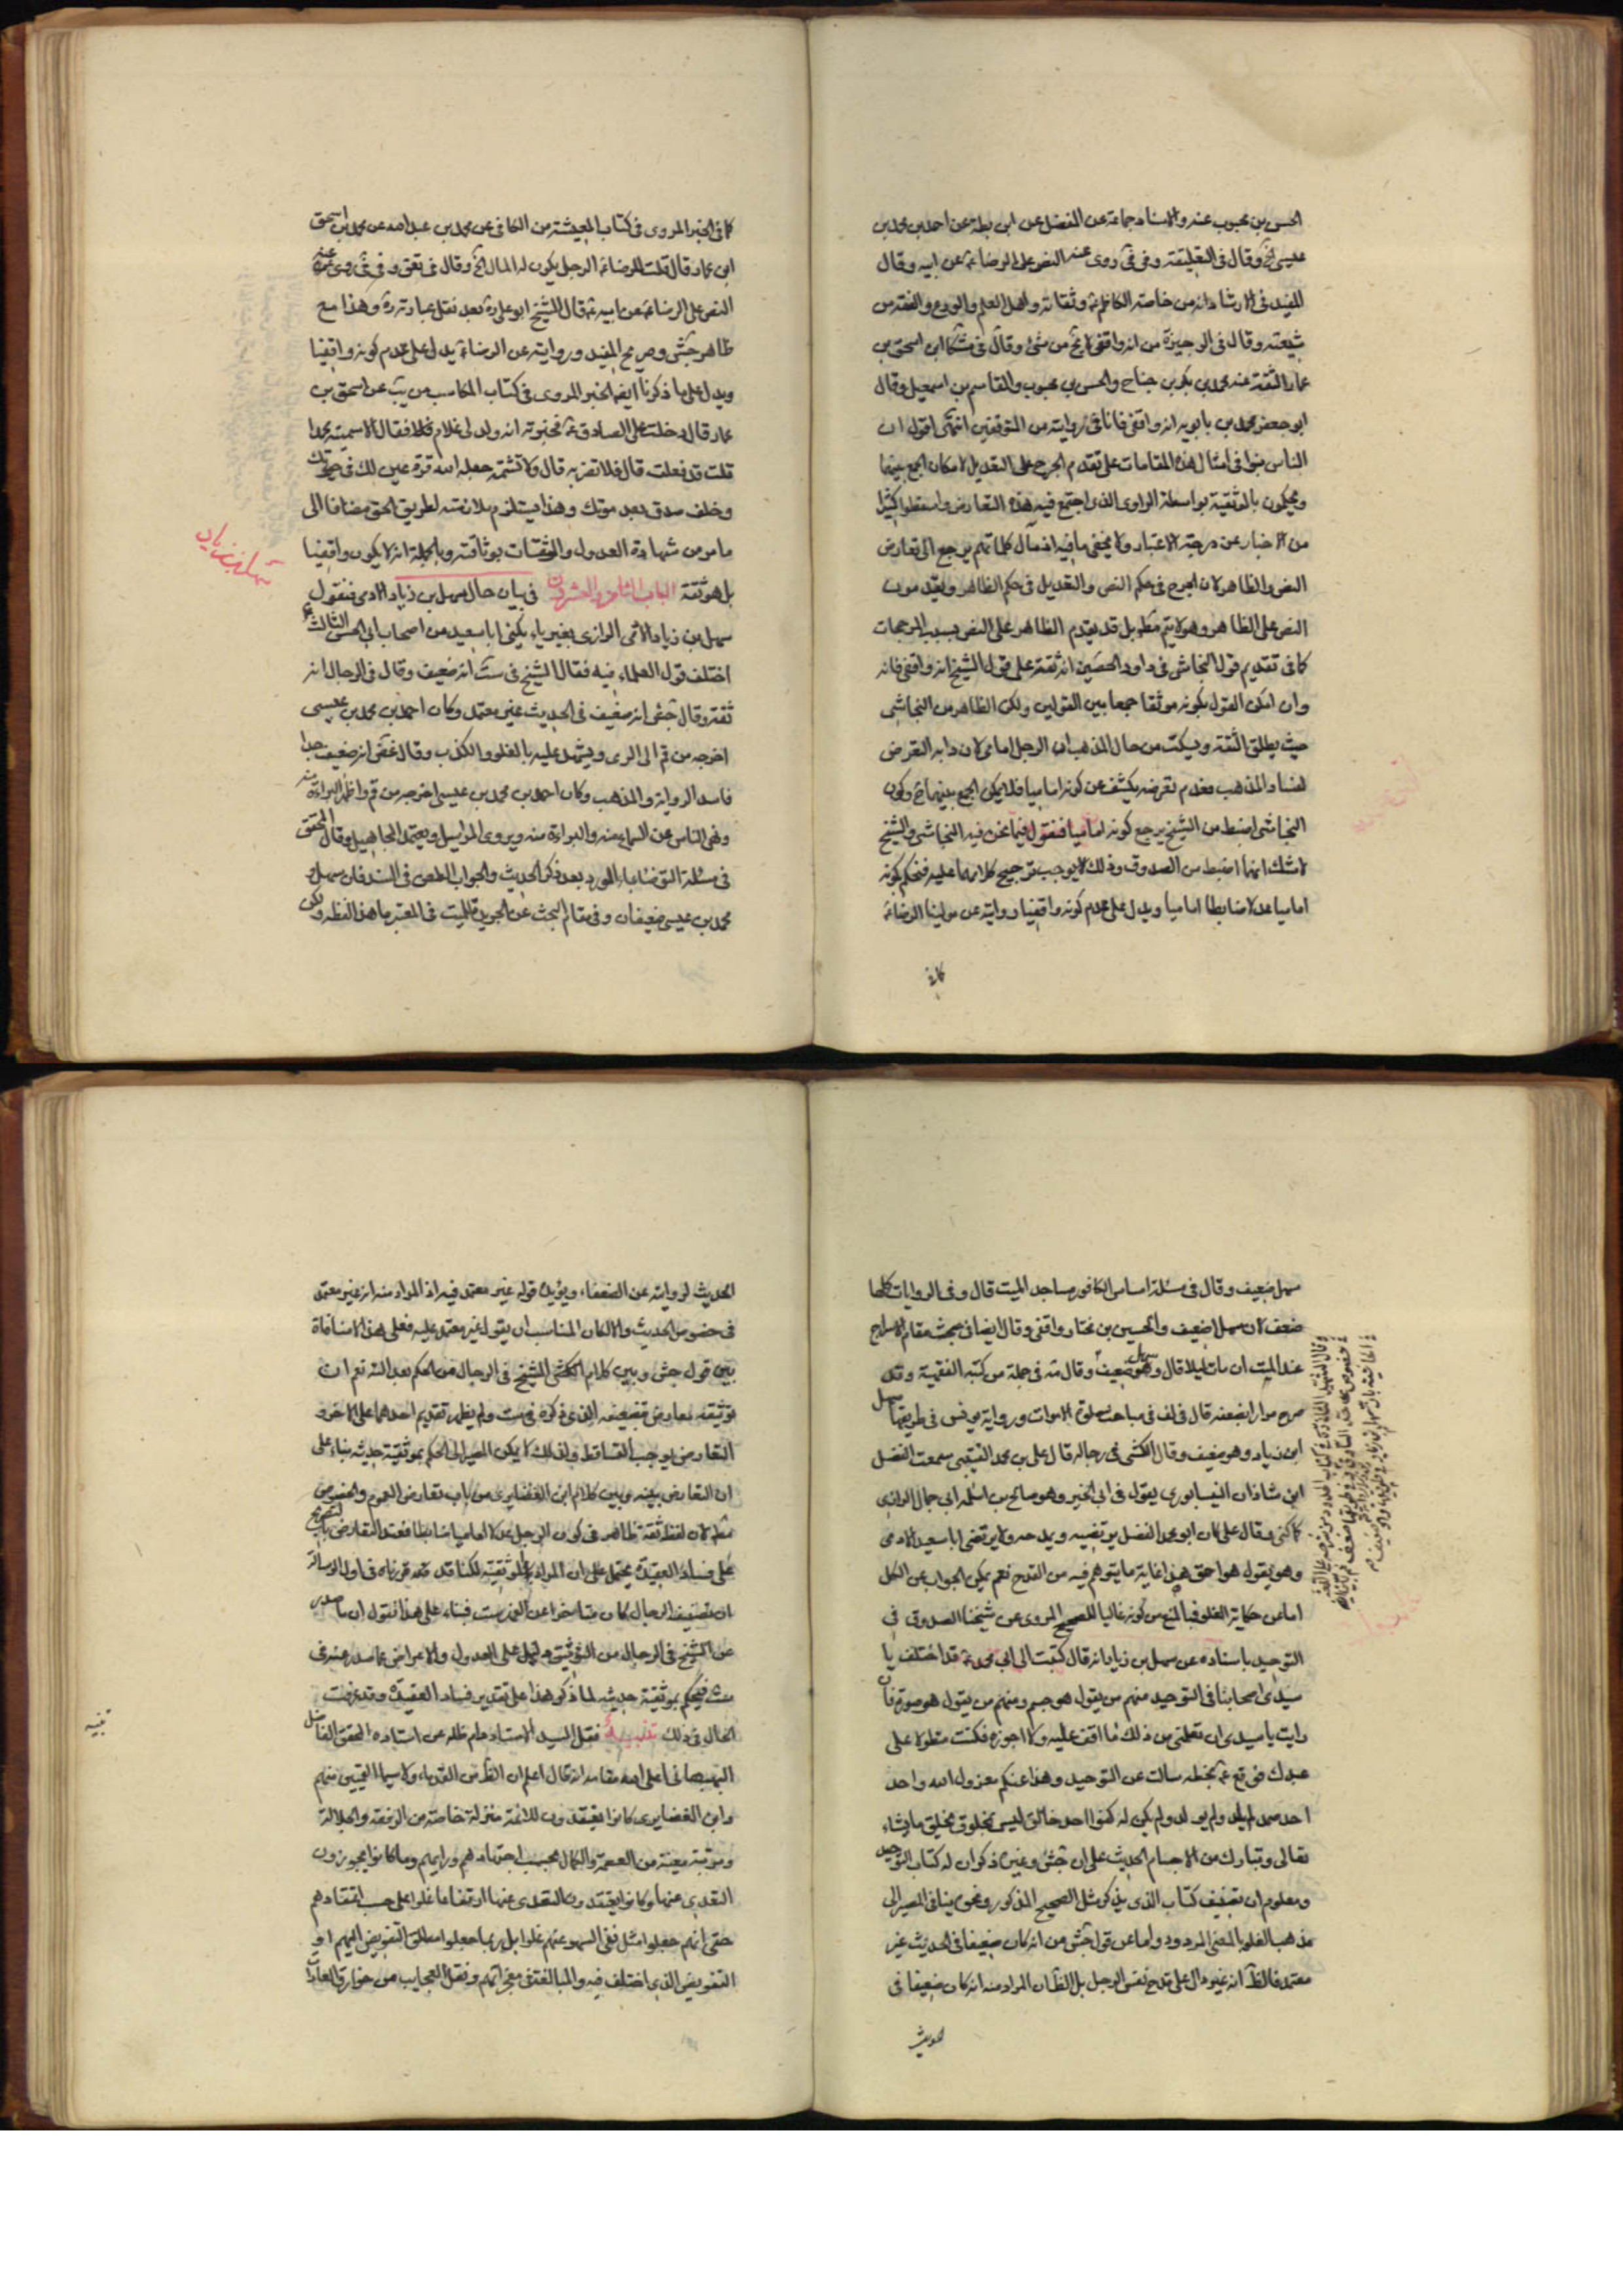 الحسن بن محبوب عنه والاسناد جماعة عن المفضل عن ابن بطة عن احمد بن محمد بن
عيسى الخ وقال في التعليقة وفي في روى عنه النص على الرضا ع عن ابيه وقال
المفيد في الارشاد انه من خاصة الكاظم ع وثقاته واهل العلم والورع والفقه من
شيعته وقال في الوجيزة من انه واقفي وقال في مشكا ابن اسحق بن
عمار الثقة عنه محمد بن بكر بن جناح والحسن بن محبوب والقاسم بن اسمعيل وقال
ابو جعفر محمد بن بابويه انه واقفي فانا في روايته من المتوقفين انتهى اقول ان
الناس بنوا في امثال هذه المقامات على تقدم الجرح على التعديل لامكان الجمع بينهما
ويحكمون بالموثقية بواسطة الراوى الذى اجتمع فيه هذه التعارض واسقطوا كثيرا
من الاخبار عن درجة الاعتبار ولا يخفى ما فيه اذ مآل كلماتهم يرجع الى تعارض
النص والظاهر لان الجرح في حكم النص والتعديل في حكم الظاهر ويقدمون
النص على الظاهر وهو لا يتم مط بل قد يقدم الظاهر على النص بسبب المرجحات
كما في تقديم قول النجاشى في داود الحصين انه ثقة على قول الشيخ انه واقفي فانه
وان امكن القول بكونه موثقا جمعا بين القولين ولكن الظاهر من النجاشى
حيث يطلق الثقة ويسكت من حال المذهب ان الرجل امامى لان دابه التعرض
لفساد المذهب فعدم تعرضه يكشف عن كونه اماميا فلا يمكن الجمع بينهما ح وكون
النجاشى اضبط من الشيخ يرجح كونه اماميا فنقول فيما نحن فيه النجاشى والشيخ
لا شك انهما اضبط من الصدوق وذلك لا يوجب ترجيح كلامهما عليه فنحكم بكونه
اماميا عدلا ضابطا اماميا ويدل على عدم كونه واقفيا روايته عن مولينا الرضا ع
كما في
كما في الخبر المروى في كتاب المعيشة من الكافى عن محمد بن عبد الله عن محمد بن اسحق
ابن عمار قال قلت للرضا ع الرجل يكون له المال الخ وقال في تعق وفي في روى عنه
النص على الرضا ع عن ابيه ع قال الشيخ ابو على ره بعد نقل عبارته ره وهذا مع
ظاهر جش وصريح المفيد وروايته عن الرضا ع يدل على عدم كونه واقفيا
ويدل على ما ذكرنا ايضا الخبر المروى في كتاب المكاسب من يب عن اسحق بن
عمار قال دخلت على الصادق ع فخبرته انه ولد لى غلام فقال الا سميته محمدا
قلت قد فعلت قال فلا تضربه قال ولا تشتمه جعله الله قرة عين لك في حيوتك
وخلف صدق بعد موتك وهذا يستلزم ملازمته لطريق الحق مضافا الى
ما مر من شهادة العدول والثقات بوثاقته وبالجملة انه لا يكون واقفيا
بل هو ثقة الباب الثامن والعشرون في بيان حال سهل بن زياد الادمى فنقول
سهل بن زياد
سهل بن زياد الادمى الرازى بغير ياء يكنى ابا سعيد من اصحاب ابى الحسن الثالث ع
اختلف قول العلماء فيه فقال الشيخ في ست انه ضعيف وقال في الرجال انه
ثقة وقال جش انه ضعيف في الحديث غير معتمد وكان احمد بن محمد بن عيسى
اخرجه من قم الى الرى ويشهد عليه بالغلو والكذب وقال غض انه ضعيف جدا
فاسد الرواية والمذهب وكان احمد بن محمد بن عيسى اخرجه من قم واظهر البراءة منه
ونهى الناس عن السماع منه والبراءة منه ويروى المراسيل ويعتمد المجاهيل وقال المحقق
في مسئلة التوضا بماء الورد بعد ذكر الحديث والجواب الطعن في السند فان سهل و
محمد بن عيسى ضعيفان وفي مقام البحث عن الجريدة للميت في المعتبر ما هذا لفظه ولكن
سهل ضعيف وقال في مسئلة امساس الكافور مساجد الميت قال وفي الروايات كلها
ضعف لان سهلا ضعيف والحسين بن مختار واقفى وقال ايضا في مبحث مقام الاسراج
عند الميت ان مات ليلا قال وهو سهل ضعيف وقال مة في جملة من كتبه الفقهية وقد
صرح مرارا بضعفه قال في لف في مباحث صلوة الاموات ورواية يونس في طريقها سهل
ابن زياد وهو ضعيف وقال الكشى في رجاله قال على بن محمد القتيبى سمعت الفضل
ابن شاذان النيسابورى يقول في ابى الخير وهو صالح بن ابى سلمة ابى حماد الرازى
كما كنى وقال على كان ابو محمد الفضل يرتضيه ويمدحه ولا يرتضى ابا سعيد الادمى
وهو يقول هو احمق هذا غاية ما يتوهم فيه من القدح نعم يمكن الجواب عن الكل
اما عن حكاية الغلو فبالمنع من كونه غاليا للصحيح المروى عن شيخنا الصدوق في
التوحيد باسناده عن سهل بن زياد انه قال كتبت الى ابى محمد ع قد اختلف يا
سيدى اصحابنا في التوحيد منهم من يقول هو جسم ومنهم من يقول هو صورة فان
رايت يا سيدى ان تعلمنى من ذلك ما اقف عليه ولا اجوزه فكنت متطولا على
عبدك فوقع ع بخطه سالت عن التوحيد وهذا عنكم معزول الله واحد
احد صمد لم يلد ولم يولد ولم يكن له كفوا احد خالق ليس بمخلوق يخلق ما يشاء
تعالى وتبارك من الاجسام الحديث على ان جش وغيره ذكر ان له كتاب التوحيد
ومعلوم ان تصنيف كتاب الذى يذكر مثل الصحيح المذكور ونحوه ينافى المصير الى
مذهب الغلو بالمعنى المردود واما عن قول جش من انه كان ضعيفا في الحديث غير
معتمد فالظ انه غير دال على قدح نفس الرجل بل الظ ان المراد منه انه كان ضعيفا في
الحديث
الحديث لروايته عن الضعفاء ويؤيده قوله غير معتمد فيه اذ المراد منه انه غير معتمد
في خصوص الحديث والا لكان المناسب ان يقول غير معتمد عليه فعلى هذا لا منافاة
بين قول جش وبين كلام الشيخ في الرجال من الحكم بعدالته نعم ان
توثيقه معارض بتضعيفه الذى ذكره في ست ولم يظهر تقديم احدهما على الاخر و
التعارض يوجب التساقط ولذلك لا يمكن المصير الى الحكم بموثقية حديثه بناء على
ان التعارض بينه وبين كلام ابن الغضايرى من باب تعارض العموم والخصوص
مط لان لفظ ثقة ظاهر في كون الرجل عدلا اماميا ضابطا فعند التعارض بالتصريح
على فساد العقيدة يحمل على ان المراد بالموثقية لكنا قد قررناه في اول الرسالة
ان تصنيف الرجال كان متاخرا عن الفهرست فبناء على هذا نقول ان ما صدر
عن الشيخ في الرجال من التوثيق يحمل على العدول والاعراض عما صدر عنه في
ست فيحكم بموثقية حديثه لما ذكر هذا على تقدير فساد العقيدة وقد عرفت
الحال في ذلك تنبيه فنقل السيد الاستاد دام ظله عن استاده المحقق الفاضل
تنبيه
البهبهانى اعلى الله مقامه انه قال اعلم ان الظ من القدماء ولا سيما القميين منهم
وابن الغضايرى كانوا يعتقدون للائمة منزلة خاصة من الرفعة والجلالة
ومرتبة معينة من العصمة والكمال بحسب اجتهادهم ورايهم وما كانوا يجوزون
التعدى عنها وكانوا يعتقدون التعدى عنها ارتفاعا غلوا على حسب اعتقادهم
حتى انهم جعلوا مثل نفى السهو عنهم غلوا بل ربما جعلوا مطلق التفويض اليهم او
التفويض الذى اختلف فيه والمبالغة في معجزاتهم ونقل العجايب من خوارق العادات